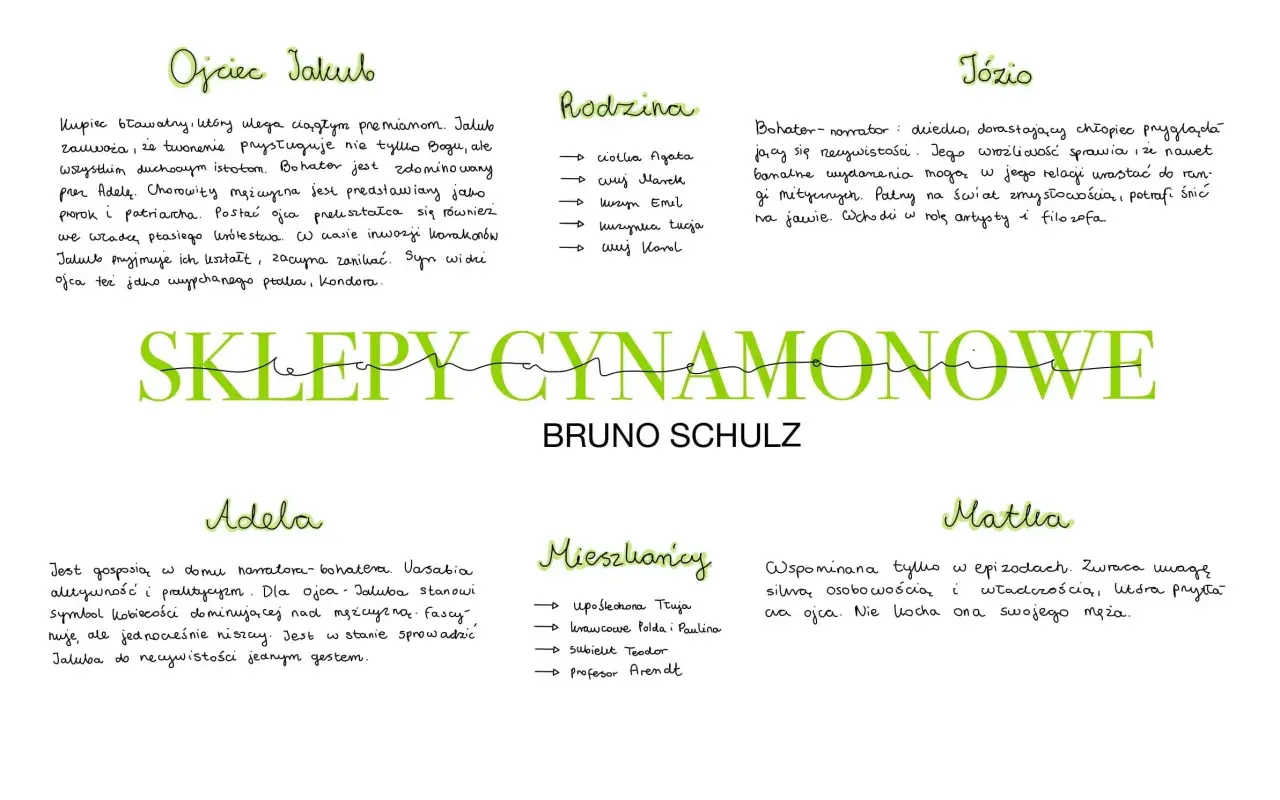 Ojciec Jakub
Kupiec bławatny, który ulega ciągłym przemianom. Jakub
zauważa, że tworzenie przysługuje nie tylko Bogu, ale
wszystkim duchowym istotom. Bohater jest zdominowany
przez Adelę. Chorowity mężczyzna jest przedstawiany jako
prorok i patriarcha. Postać ojca przekształca się również
we władcę ptasiego królestwa. W czasie inwazji karakonów
Jakub przyjmuje ich kształt, zaczyna zanikać. Syn widzi
ojca też jako wypchanego ptaka, kondora.
Rodzina
→ ciotka Agata
→ wuj Marek
→ kuzyn Emil
→ kuzynka Łucja
→ wuj Karol
Józio
Bohater-narrator: dziecko, dorastający chłopiec przygląda-
jący się rzeczywistości. Jego wrażliwość sprawia, że nawet
banalne wydarzenia mogą w jego relacji urastać do ran-
gi mitycznych. Patrzy na świat zmysłowością, potrafi śnić
na jawie. Wchodzi w rolę artysty i filozofa.
SKLEPY CYNAMONOWE
BRUNO SCHULZ
Adela
Jest gosposią w domu narratora-bohatera. Uosabia
aktywność i praktycyzm. Dla ojca-Jakuba stanowi
symbol kobiecości dominującej nad mężczyzną. Fascy-
nuje, ale jednocześnie niszczy. Jest w stanie sprowadzić
Jakuba do rzeczywistości jednym gestem.
Mieszkańcy
→ upośledzona Tłuja
→ krawcowe Polda i Paulina
→ subiekt Teodor
→ profesor Arendt
Matka
Wspominana tylko w epizodach. Zwraca uwagę
silną osobowością i władczością, która przytła-
cza ojca. Nie kocha ona swojego męża.